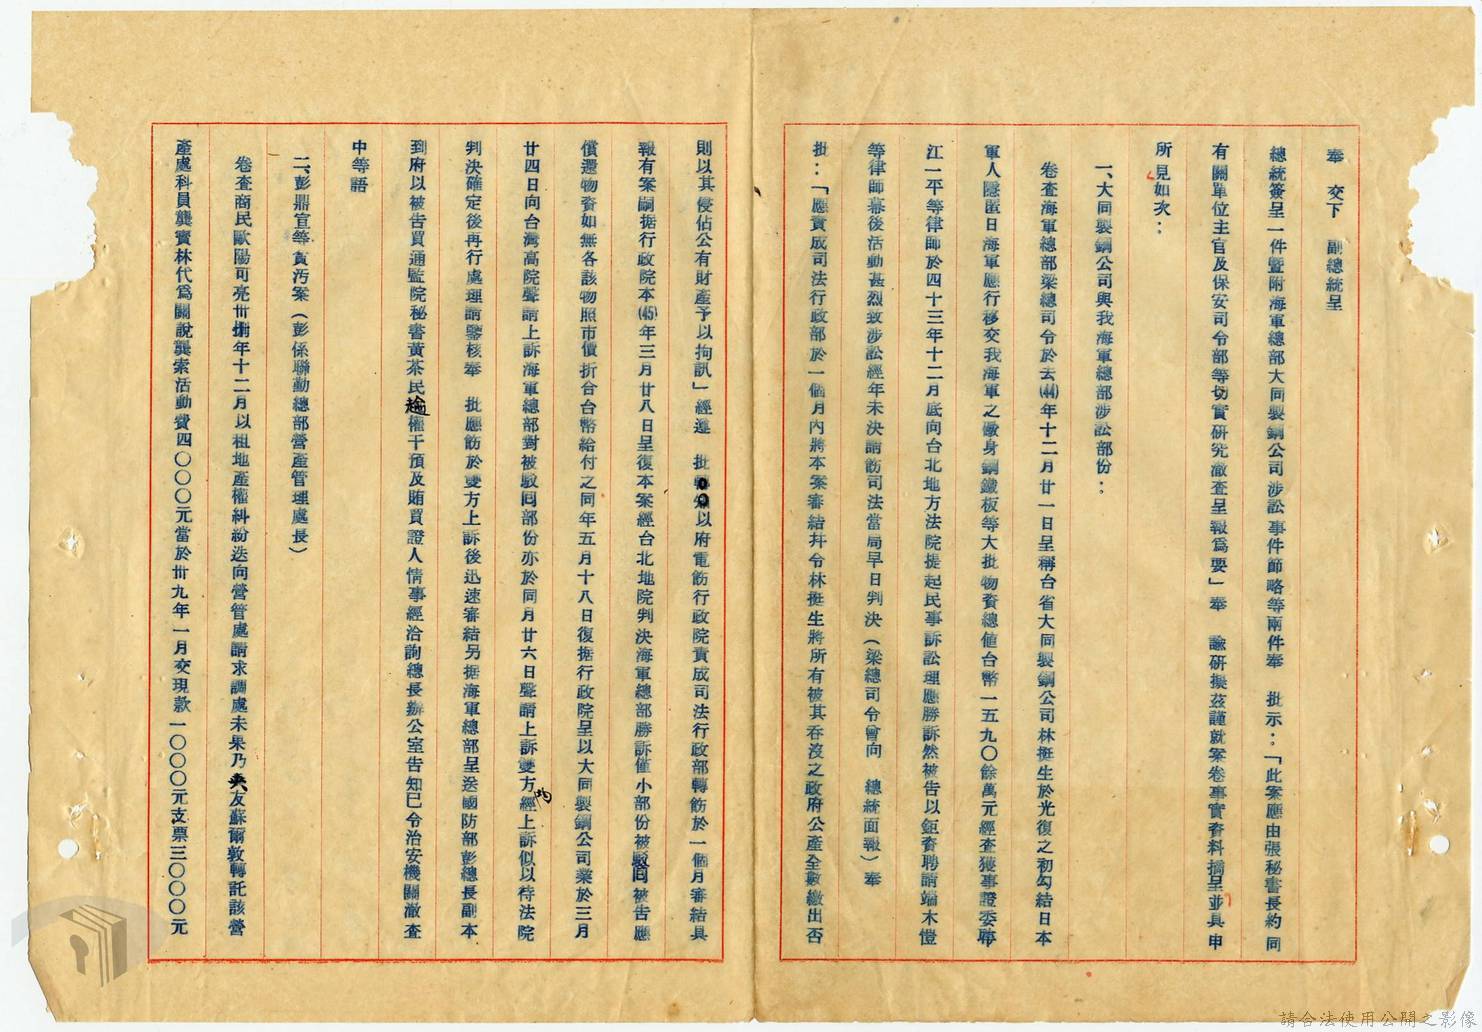 奉　交下　副總統呈
總統簽呈一件暨附海軍總部大同製鋼公司涉訟事件節略等兩件奉　批示：「此案應由張秘書長約同
有關單位主官及保安司令部等切實研究澈查呈報為要」奉　諭研擬茲謹就案卷事實資料摘呈並具申
所見如次：
一、大同製鋼公司與我海軍總部涉訟部份：
卷查海軍總部梁總司令於去(44)年十二月廿一日呈稱台省大同製鋼公司林挺生於光復之初勾結日本
軍人隱匿日海軍應行移交我海軍之礮身鋼鐵板等大批物資總值台幣一五九〇餘萬元經查獲事證委聘
江一平等律師於四十三年十二月底向台北地方法院提起民事訴訟理應勝訴然被告以鉅資聘請端木愷
等律師幕後活動甚烈致涉訟經年未決請飭司法當局早日判決（梁總司令曾向　總統面報）奉
批：「應責成司法行政部於一個月內將本案審結并令林挺生將所有被其吞沒之政府公產全數繳出否
則以其侵佔公有財產予以拘訊」經遵　批以府電飭行政院責成司法行政部轉飭於一個月審結具
報有案嗣据行政院本(45)年三月廿八日呈復本案經台北地院判決海軍總部勝訴僅小部份被駁回被告應
償還物資如無各該物照市價折合台幣給付之同年五月十八日復据行政院呈以大同製鋼公司業於三月
廿四日向台灣高院聲請上訴海軍總部對被駁回部份亦於同月廿六日聲請上訴雙方均經上訴似以待法院
判決確定後再行處理請鑒核奉　批應飭於雙方上訴後迅速審結另据海軍總部呈送國防部彭總長副本
到府以被告買通監院秘書黃茶民越權干預及賄買證人情事經洽詢總長辦公室告知已令治安機關澈查
中等語
二、彭鼎宣等貪污案（彭係聯勤總部營產管理處長）
卷查商民歐陽可亮卅捌年十二月以租地產權糾紛迭向營管處請求調處未果乃央友蘇爾敦轉託該營
產處科員龔實林代為關說龔索活動費四〇〇〇元當於卅九年一月交現款一〇〇〇元支票三〇〇〇元
請合法使用公開之影像